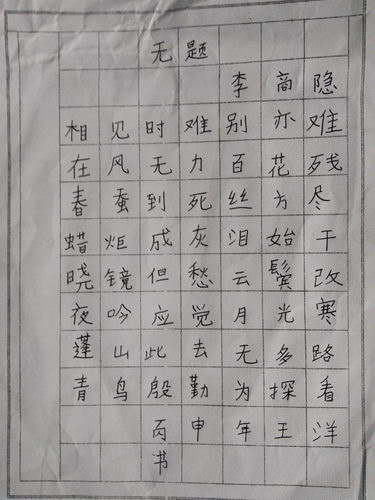 无题
李商隐
相见时难别亦难
在风无力百花残
春蚕到死丝方尽
蜡炬成灰泪始干
晓镜但愁云鬓改
夜吟应觉月光寒
蓬山此去无多路
青鸟殷勤为探看
丙申年王洋
书